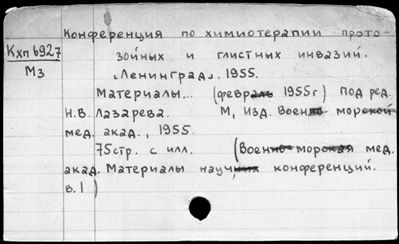 Конференция по химиотерапии прото-
Кхп6927
зойных и глистных инвазий.
М3
"Ленинград". 1955.
Материалы... (февраль 1955г) под ред.
Н.В. Лазарева. М, Изд. Военно-морской
мед. акад., 1955.
75стр. с илл. (Военно-морская мед.
акад. Материалы научных конференций.
в.1)